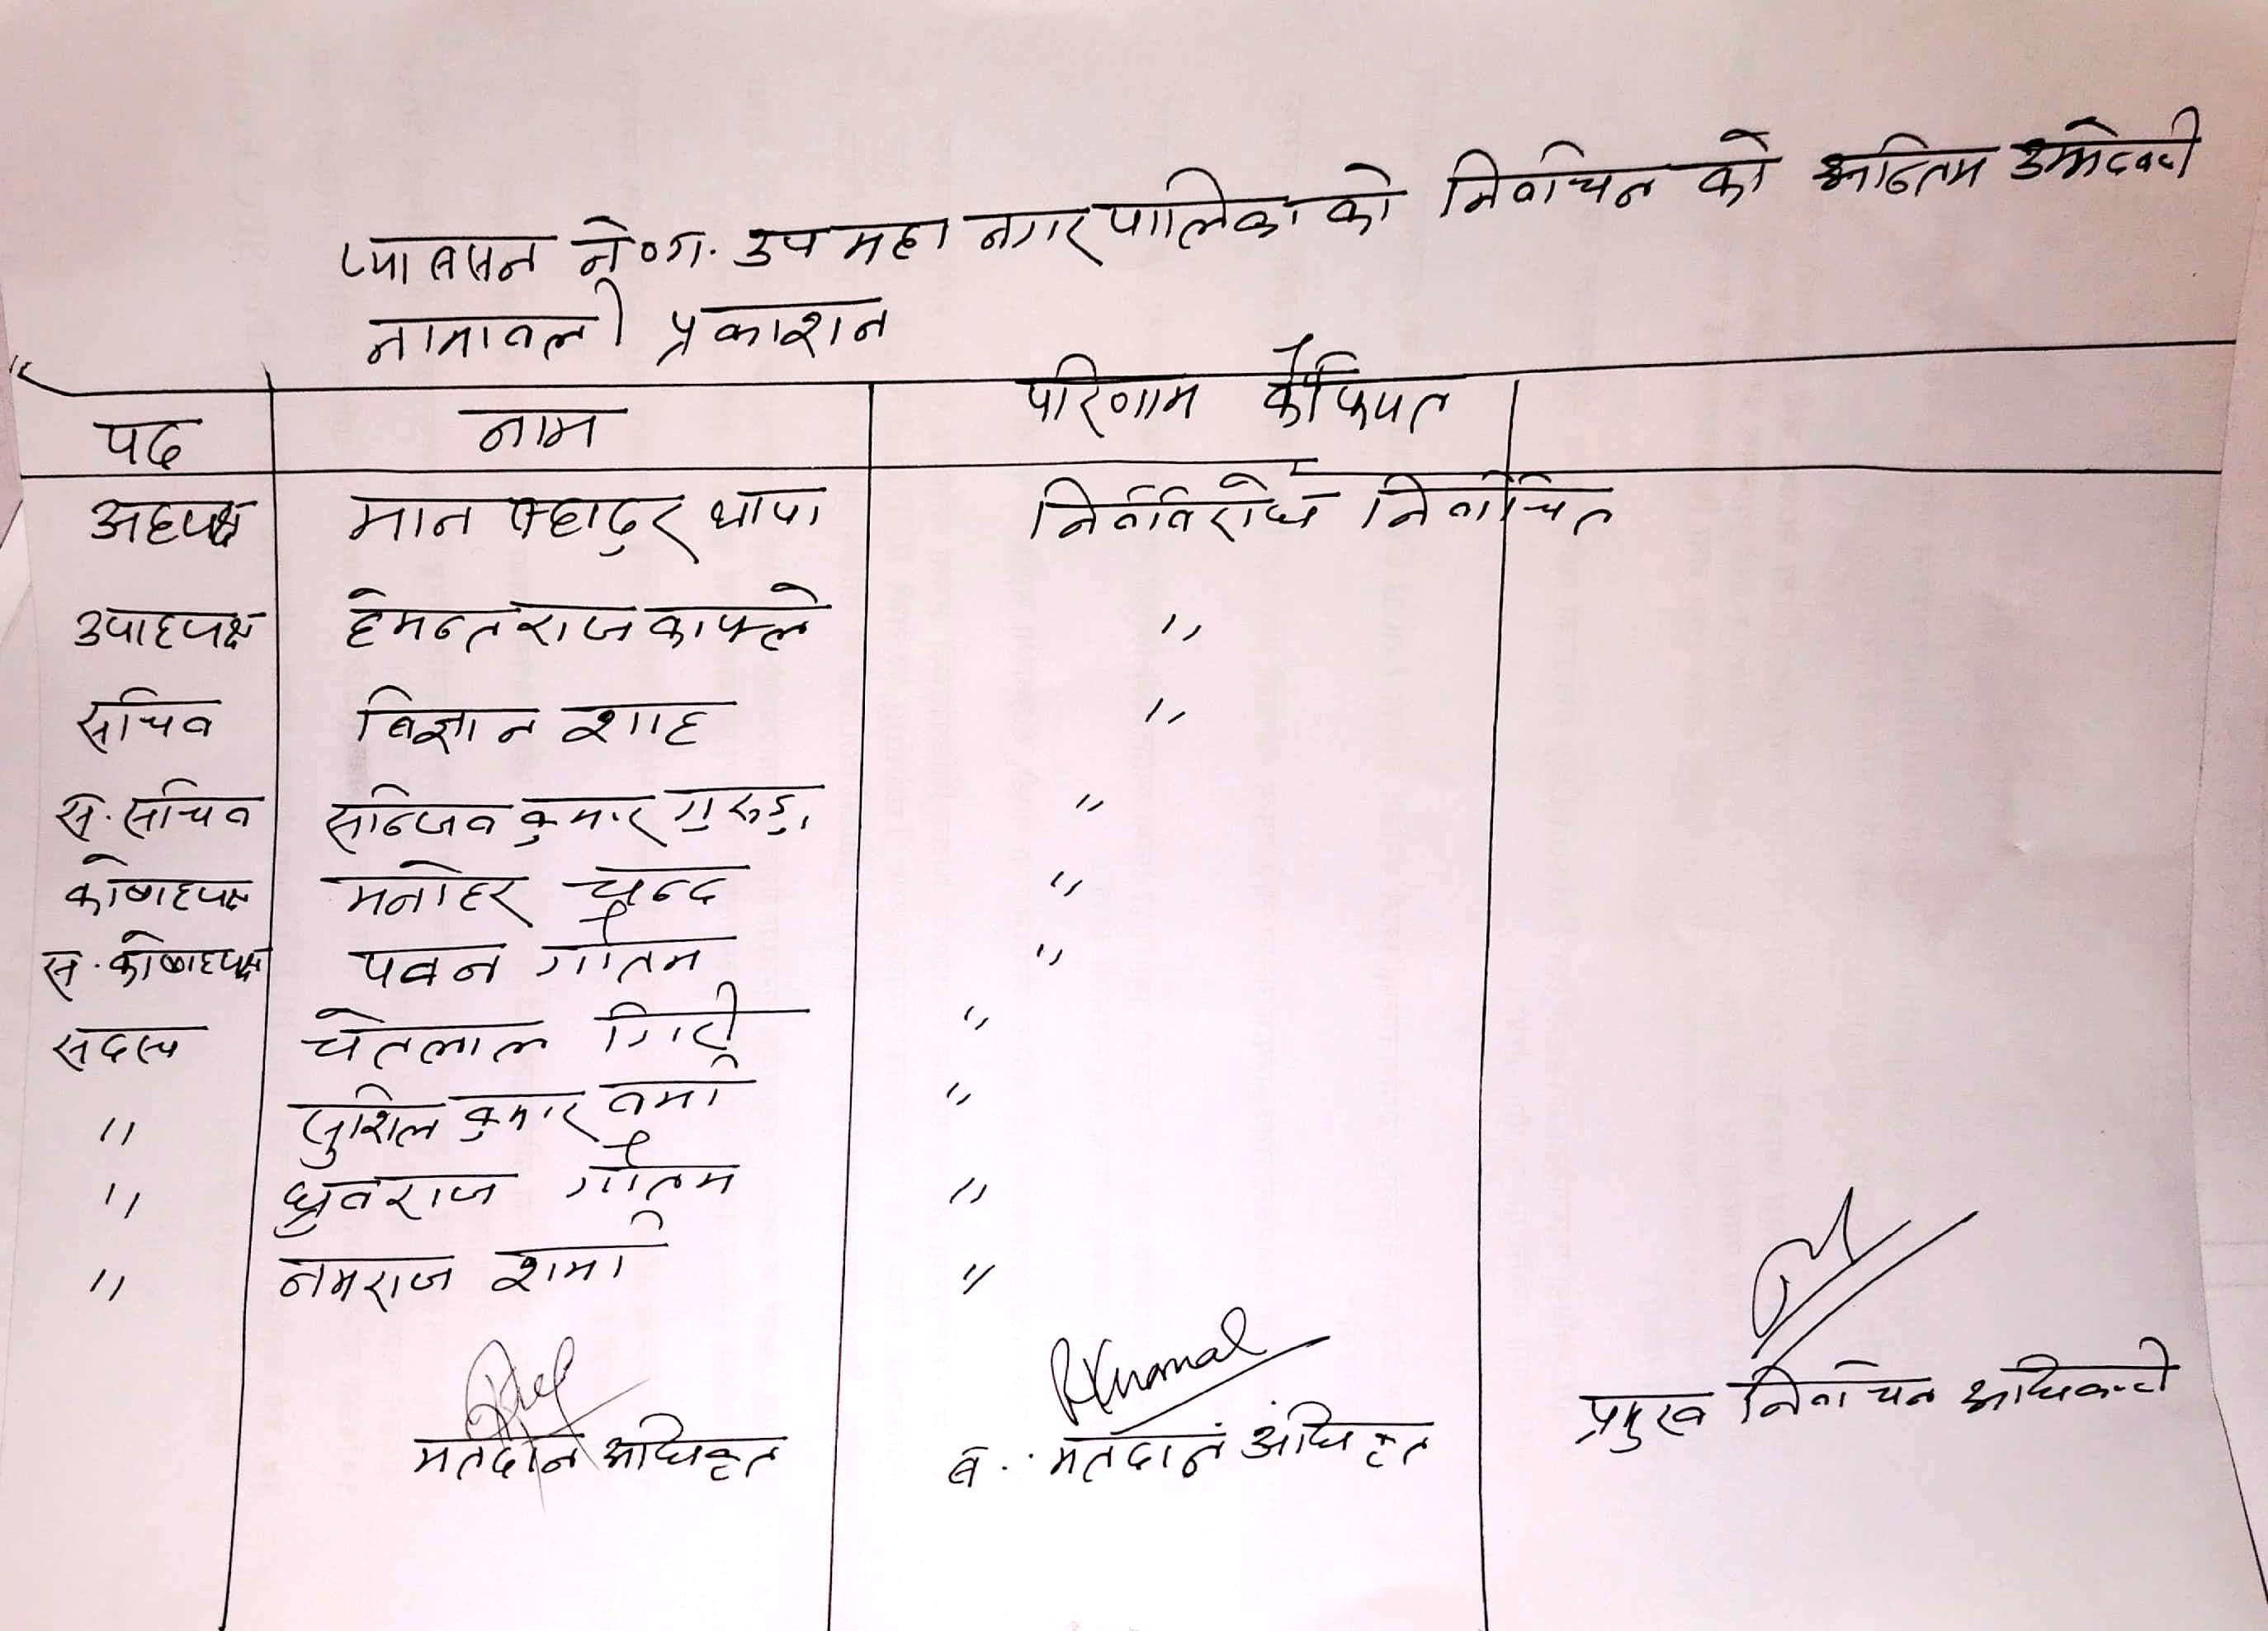 प्याब्सन ने.ग. उप महा नगरपालिकाको निर्वाचन को अन्तिम उम्मेदवारी
नामावली प्रकाशन
पद नाम परिणाम कैफियत
अध्यक्ष मान बहादुर थापा निर्विरोध निर्वाचित
उपाध्यक्ष हेमन्तराज काफ्ले "
सचिव बिज्ञान शाह "
स. सचिव सन्जिव कुमार गुरुङ "
कोषाध्यक्ष मनोहर चन्द "
स. कोषाध्यक्ष पवन गौतम "
सदस्य चेतलाल गिरी "
" सुशिल कुमार वर्मा "
" ध्रुवराज गौतम "
" नमराज शर्मा "
मतदान अधिकृत
स. मतदान अधिकृत
प्रमुख निर्वाचन अधिकारी